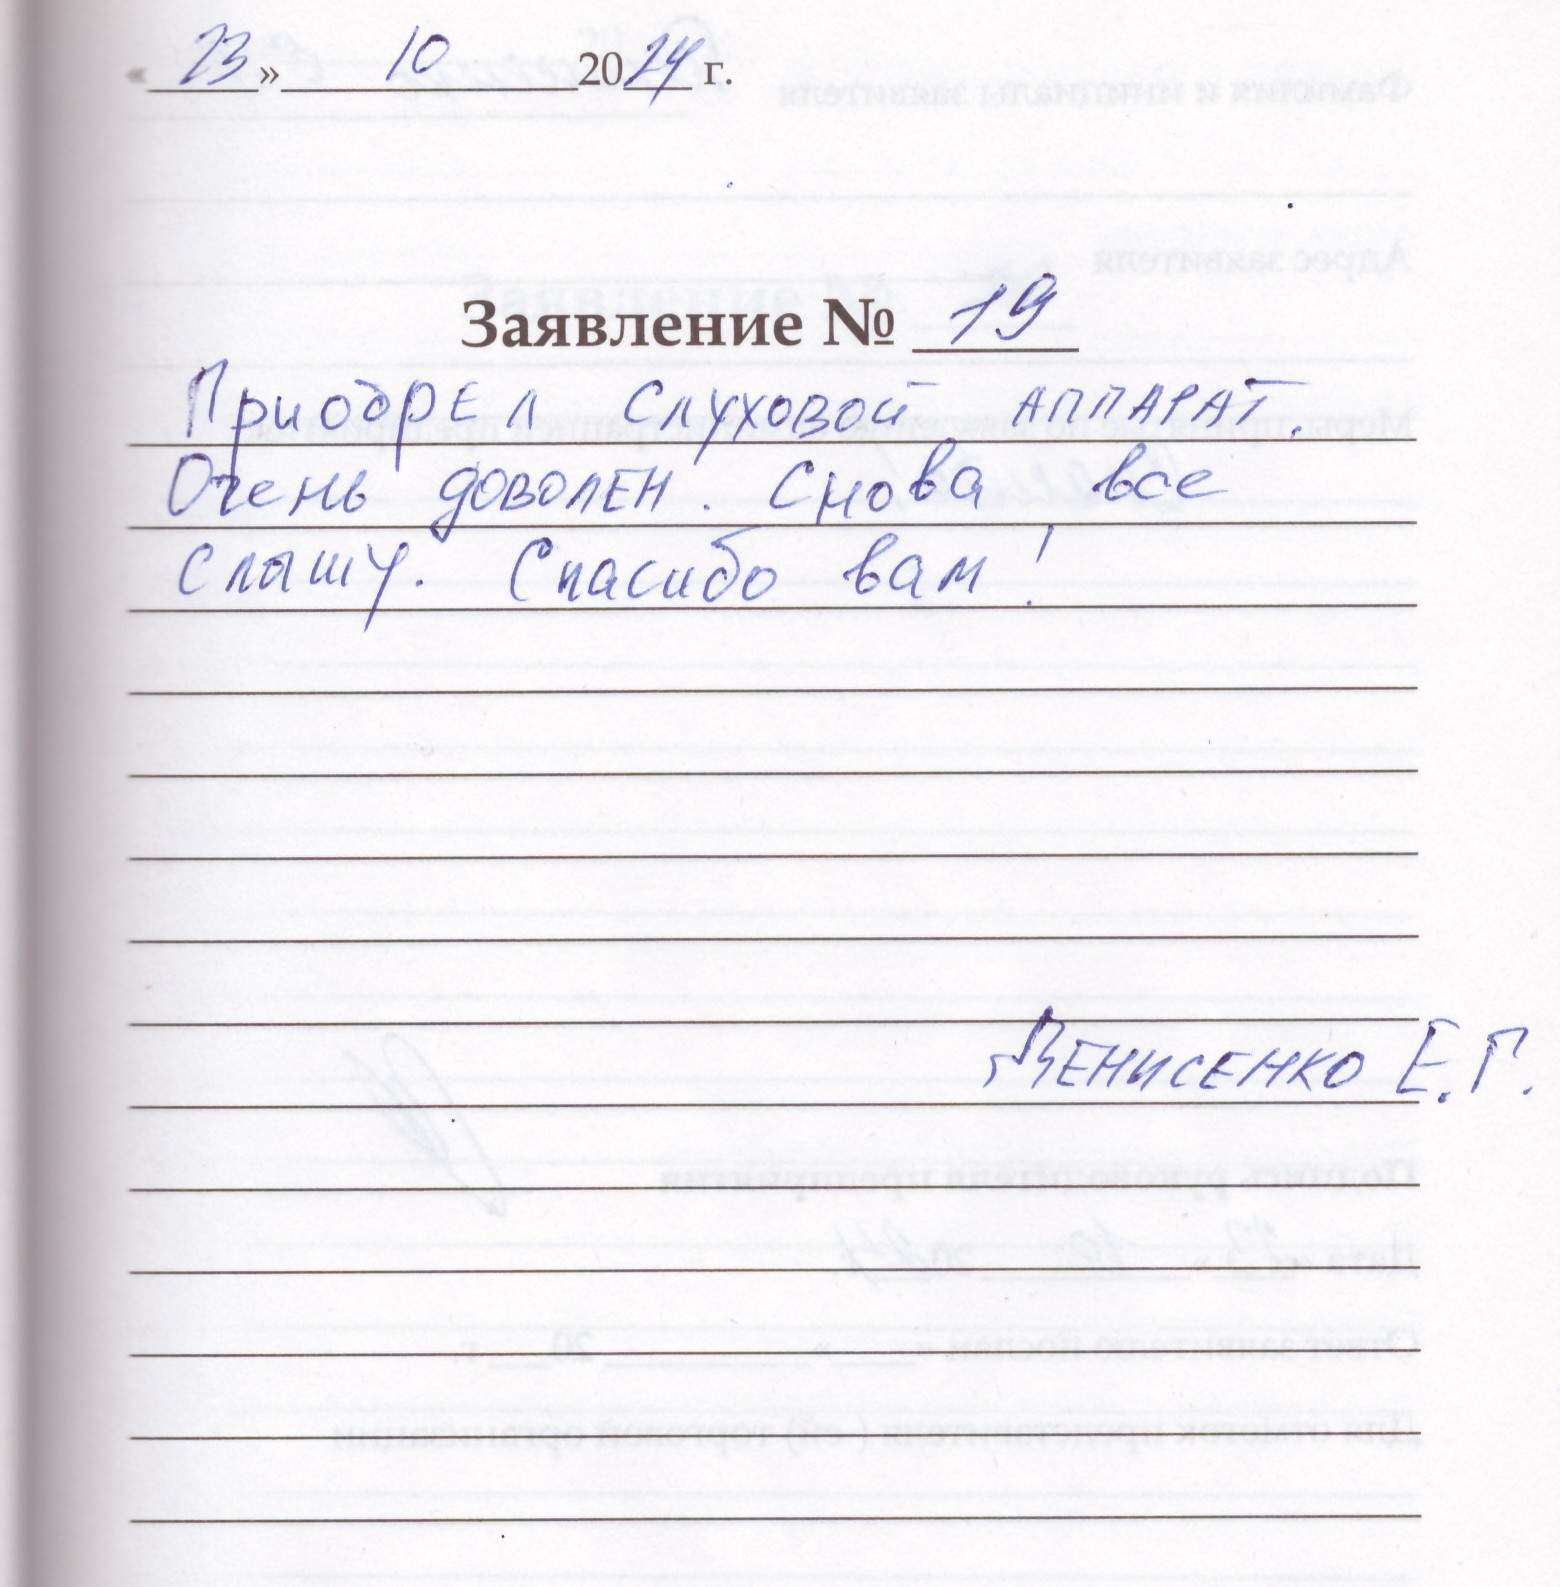 «23» 10 2024 г.
Заявление № 19
Приобрел слуховой аппарат.
Очень доволен. Снова все
слышу. Спасибо вам!
Денисенко Е.Г.